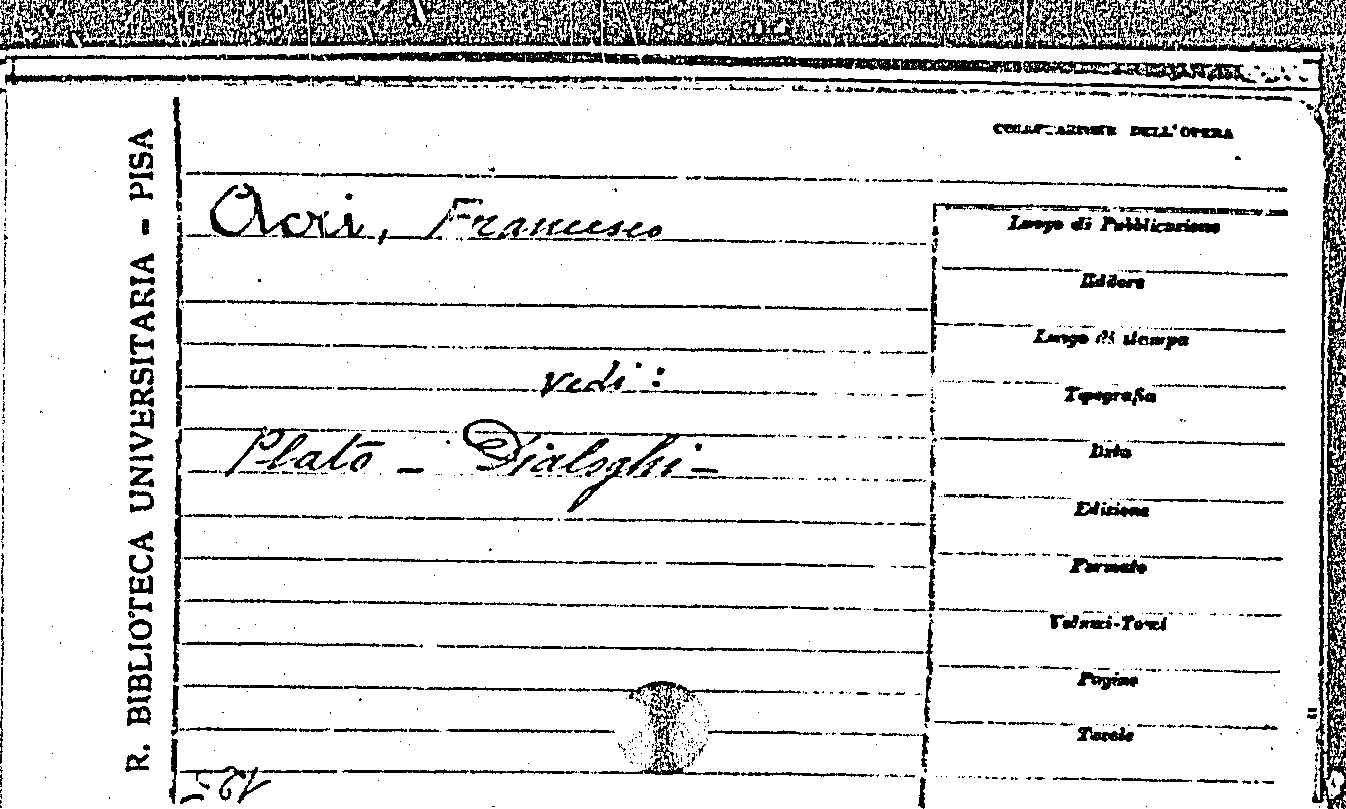 R. BIBLIOTECA UNIVERSITARIA - PISA
COLLOCAZIONE DELL'OPERA
Acri, Francesco
vedi:
Plato - Dialoghi -
Luogo di Pubblicazione
Editore
Luogo di stampa
Tipografia
Data
Edizione
Formato
Volumi-Tomi
Pagine
Tavole